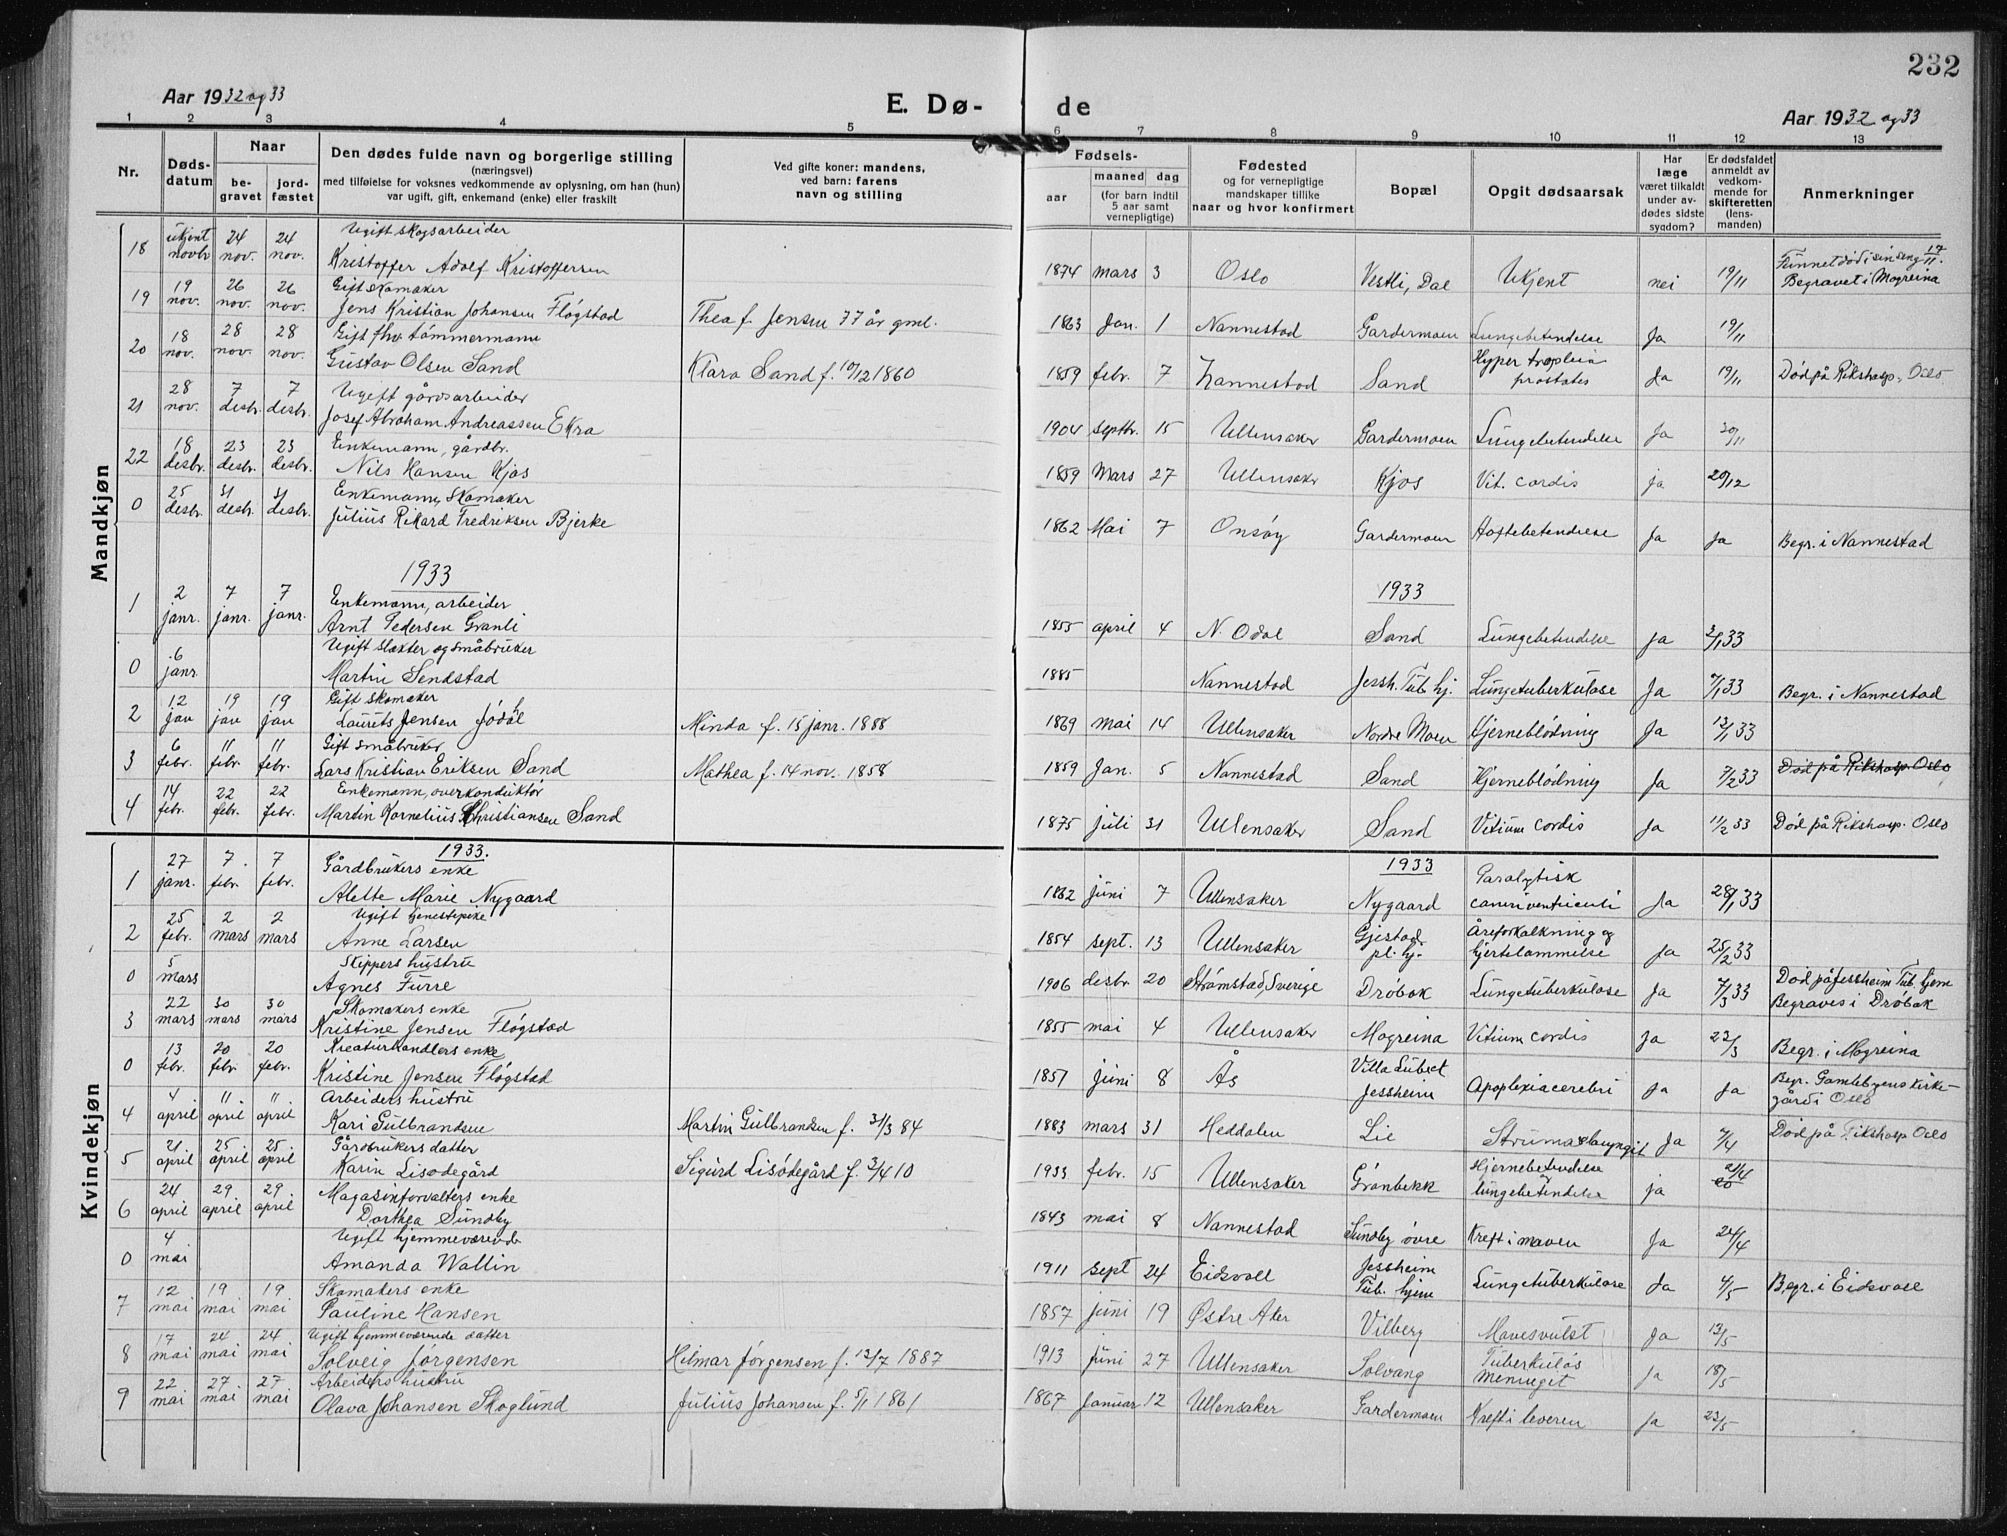 232
Aar 1932 og 33
E. Dø-
de
Aar 1932 og 33
1 2 3 4 5 6 7 8 9 10 11 12 13
Nr.
Døds-
datum
Naar
be-
gravet
jord-
fæstet
Den dødes fulde navn og borgerlige stilling
(næringsvei)
med tilføielse for voksnes vedkommende av oplysning, om han (hun)
var ugift, gift, enkemand (enke) eller fraskilt
Ved gifte koner: mandens,
ved barn: farens
navn og stilling
Fødsels-
aar
maaned dag
(for barn indtil
5 aar samt
vernepligtige)
Fødested
og for vernepligtige
mandskaper tillike
naar og hvor konfirmert
Bopæl
Opgit dødsaarsak
Har
læge
været tilkaldt
under av-
dødes sidste
sygdom?
Er dødsfaldet
anmeldt av
vedkom-
mende for
skifteretten
(lens-
manden)
Anmerkninger
Mandkjøn
18 ukjent novbr 24 nov. 24 nov. Ugift skogsarbeider
Kristoffer Adolf Kristoffersen 1874 mars 3 Oslo Vestli, Dal Ukjent nei 19/11 Funnet død i sin seng 17/11.
Begravet i Mogreina
19 19 nov. 26 nov. 26 nov. Gift skomaker
Jens Kristian Johansen Fløgstad Thea f. Jensen 77 år gml. 1863 Jan. 1 Nannestad Gardermoen Lungebetendelse Ja 19/11
20 18 nov. 28 nov. 28 nov. Gift fhv. tømmermann
Gustav Olsen Sand Klara Sand f. 10/12 1860 1859 febr. 7 Nannestad Sand Hyper tropleia
prostates Ja 19/11 Død på Rikshosp., Oslo
21 28 nov. 7 desbr. 7 desbr. Ugift gårdsarbeider
Josef Abraham Andreassen Ekra 1904 septbr. 15 Ullensaker Gardermoen Lungebetendelse Ja 30/11
22 18 desbr. 23 desbr. 23 desbr. Enkemann, gårdbr.
Nils Hansen Kjos 1859 Mars 27 Ullensaker Kjos Vit. cordis ja 20/12
0 25 desbr. 31 desbr. 31 desbr. Enkemann, skomaker
Julius Rikard Fredriksen Bjerke 1862 Mai 7 Onsøy Gardermoen Hoftebetendelse Ja Ja Begr. i Nannestad
1933
1933
1 2 janr. 7 janr. 7 janr. Enkemann, arbeider
Arnt Pedersen Granli 1855 april 4 N. Odal Sand Lungebetendelse ja 3/1 33
0 6 janr. Ugift slakter og småbruker
Martin Sendstad 1885 Nannestad Jessh. Tub. hj. Lungetuberkulose Ja 7/1 33 Begr. i Nannestad
2 12 jan 19 jan 19 jan Gift skomaker
Laurits Jensen Jødal Minda f. 15 janr. 1888 1869 mai 14 Ullensaker Nordre Moen Hjerneblødning Ja 13/1 33
3 6 febr. 11 febr. 11 febr. Gift småbruker
Lars Kristian Eriksen Sand Mathea f. 14 nov. 1858 1859 Jan. 5 Nannestad Sand Hjerneblødning Ja 7/2 33 Død på Rikshosp. Oslo
4 14 febr. 22 febr. 22 febr. Enkemann, overkonduktør
Martin Kornelius Christiansen Sand 1875 juli 31 Ullensaker Sand Vitium cordis Ja 11/2 33 Død på Rikshosp. Oslo
Kvindekjøn
1933.
1933
1 27 janr. 7 febr. 7 febr. Gårdbrukers enke
Alette Marie Nygaard 1862 juni 7 Ullensaker Nygaard Paralytisk Ja 28/1 33
2 25 febr. 2 mars 2 mars Ugift tjenestepike
Anne Larsen 1854 sept. 13 Ullensaker Gjestad
pl. hj. Åreforkalkning og
hjertelammelse Ja 25/2 33
0 5 mars Skippers hustru
Agnes Furre 1906 desbr 20 Strømstad, Sverige Drøbak Lungetuberkulose Ja 7/3 33 Død på Jessheim Tub. hjem
Begraves i Drøbak
3 22 mars 30 mars 30 mars Skomakers enke
Kristine Jensen Fløgstad 1855 mai 4 Ullensaker Mogreina Vitium cordis Ja 23/3 Begr. i Mogreina
0 13 febr. 20 febr. 20 febr. Kreaturhandlers enke
Kristine Jensen Fløgstad 1857 juni 8 Ås Villa
Jessheim Apoplexia cerebri Ja Ja Begr. Gamlebyens kirke-
gård i Oslo
4 4 april 11 april 11 april Arbeiders hustru
Kari Gulbrandsen Martin Gulbrandsen f. 31/3 84 1883 mars 31 Heddalen Lie Struma Ja 7/4 Død på Rikshosp Oslo
5 21 april 25 april 25 april Gårdbrukers datter
Karin Lisødegård Sigurd Lisødegård f. 3/4 10 1933 febr. 15 Ullensaker Grønbekk Hjernebetendelse
lungebetendelse ja 21/4
6 24 april 29 april 29 april Magasinforvalters enke
Dorthea Sundby 1843 mai 8 Nannestad Sundby øvre Kreft i maven Ja 24/4
0 4 mai Ugift hjemmeværende
Amanda Wallin 1911 sept 24 Eidsvoll Jessheim
Tub. hjem Lungetuberkulose Ja 4/5 Begr. i Eidsvoll
7 12 mai 19 mai 19 mai Skomakers enke
Pauline Hansen 1857 juni 19 Østre Aker Vilberg Mavesvulst Ja 13/5
8 17 mai 24 mai 24 mai Ugift hjemmeværende datter
Solveig Jørgensen Hilmar Jørgensen f. 13/7 1887 1913 Juni 27 Ullensaker Solvang Tuberkuløs
meningit Ja 18/5
9 22 mai 27 mai 27 mai Arbeiders hustru
Olava Johansen Skoglund Julius Johansen f. 5/1 1861 1867 Januar 12 Ullensaker Gardermoen Kreft i leveren Ja 23/5